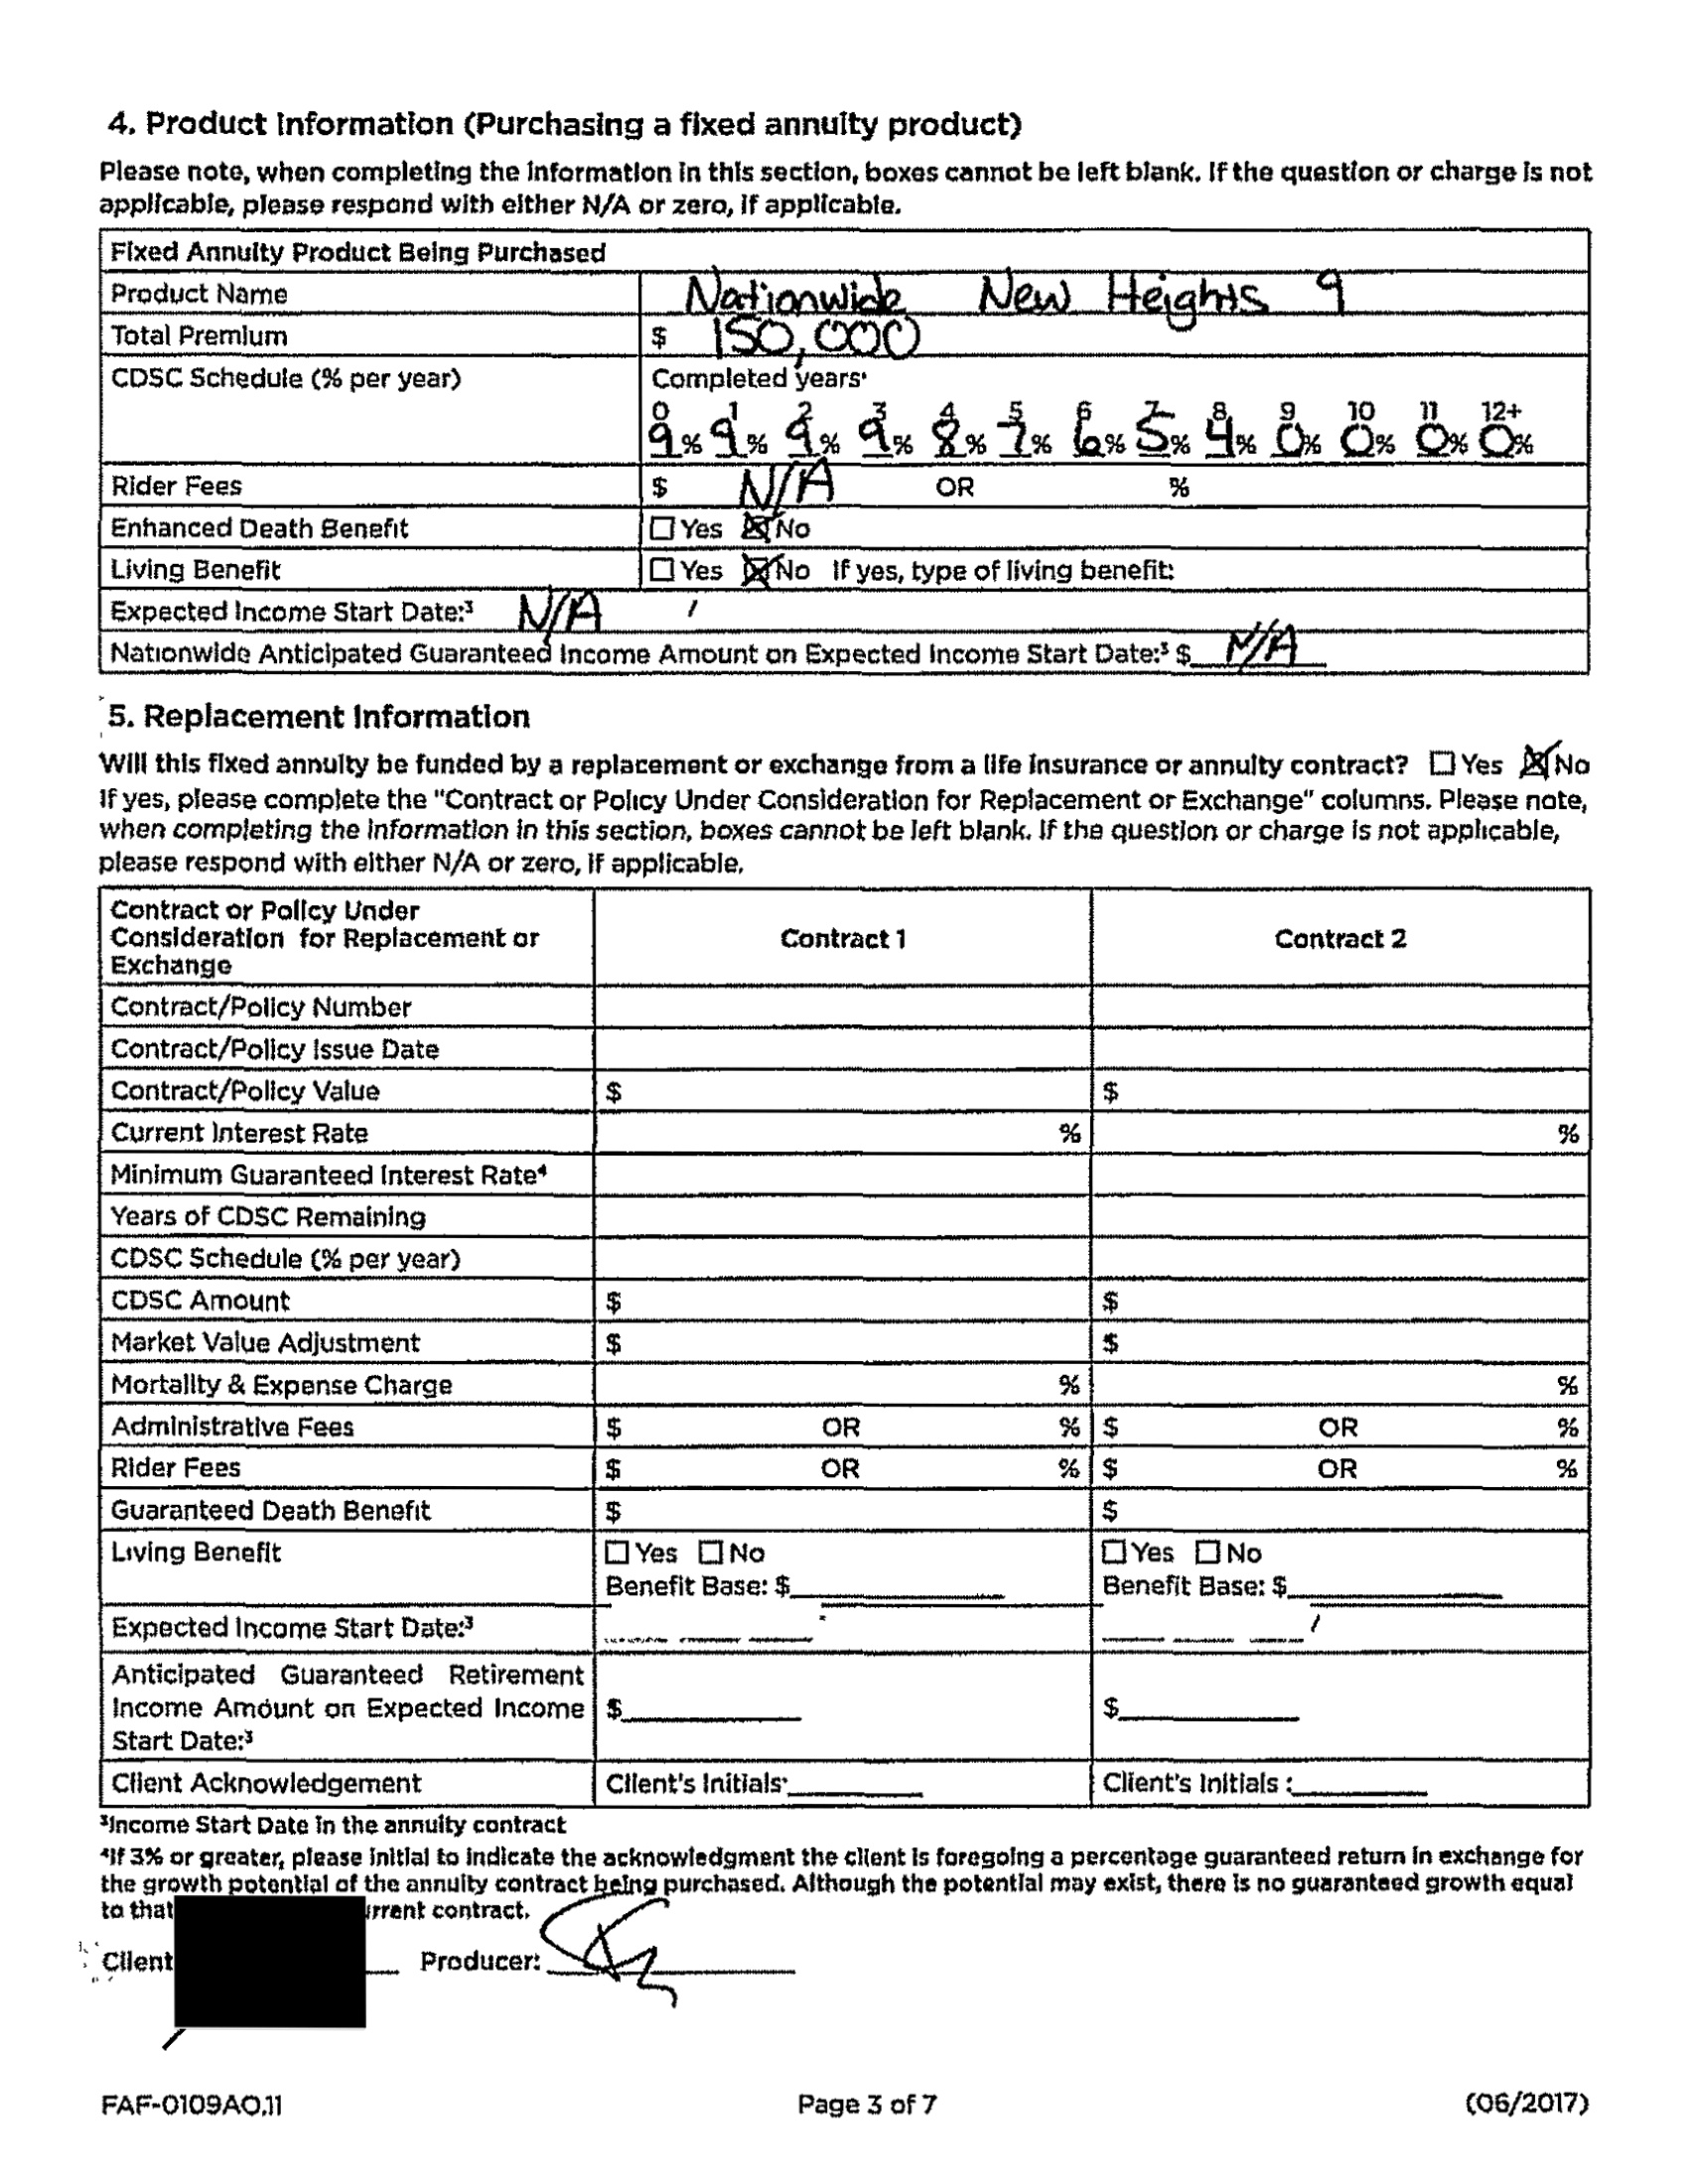 4. Product Information (Purchasing a fixed annuity product)
Please note, when completing the information in this section, boxes cannot be left blank. If the question or charge is not
applicable, please respond with either N/A or zero, if applicable.
Fixed Annuity Product Being Purchased
Product Name Nationwide New Heights 9
Total Premium $ 150,000
CDSC Schedule (% per year) Completed years:
0 1 2 3 4 5 6 7 8 9 10 11 12+
9% 9% 9% 9% 8% 7% 6% 5% 4% 0% 0% 0% 0%
Rider Fees $ N/A OR %
Enhanced Death Benefit ☐ Yes ☒ No
Living Benefit ☐ Yes ☒ No If yes, type of living benefit:
Expected Income Start Date:³ N/A /
Nationwide Anticipated Guaranteed Income Amount on Expected Income Start Date:³ $ N/A
5. Replacement Information
Will this fixed annuity be funded by a replacement or exchange from a life insurance or annuity contract? ☐ Yes ☒ No
If yes, please complete the "Contract or Policy Under Consideration for Replacement or Exchange" columns. Please note,
when completing the information in this section, boxes cannot be left blank. If the question or charge is not applicable,
please respond with either N/A or zero, if applicable.
Contract or Policy Under
Consideration for Replacement or
Exchange
Contract 1 Contract 2
Contract/Policy Number
Contract/Policy Issue Date
Contract/Policy Value $ $
Current Interest Rate % %
Minimum Guaranteed Interest Rate⁴
Years of CDSC Remaining
CDSC Schedule (% per year)
CDSC Amount $ $
Market Value Adjustment $ $
Mortality & Expense Charge % %
Administrative Fees $ OR % $ OR %
Rider Fees $ OR % $ OR %
Guaranteed Death Benefit $ $
Living Benefit ☐ Yes ☐ No ☐ Yes ☐ No
Benefit Base: $ Benefit Base: $
Expected Income Start Date:³ /
Anticipated Guaranteed Retirement
Income Amount on Expected Income $ $
Start Date:³
Client Acknowledgement Client's Initials: Client's Initials :
³Income Start Date in the annuity contract
⁴If 3% or greater, please initial to indicate the acknowledgment the client is foregoing a percentage guaranteed return in exchange for
the growth potential of the annuity contract being purchased. Although the potential may exist, there is no guaranteed growth equal
to that urrent contract.
Client Producer:
FAF-0109AO.11 Page 3 of 7 (06/2017)